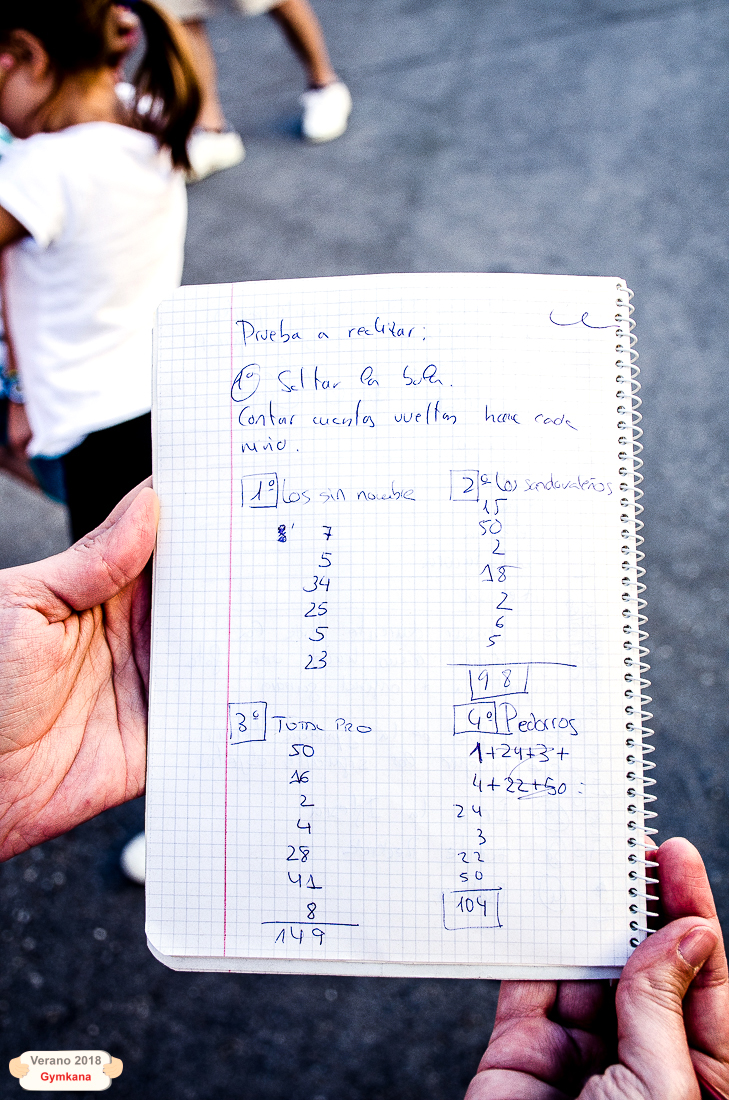 Prueba a realizar:
1º Saltar la bola.
Contar cuantas vueltas hace cada
niño.
1º Los sin nombre
7
5
34
25
5
23
2º Los sandovaleños
15
50
2
18
2
6
5
98
3º TOTAL PRO
50
16
2
4
28
41
8
149
4º Pedorros
1+24+3+
4+22+50=
24
3
22
50
104
Verano 2018
Gymkana